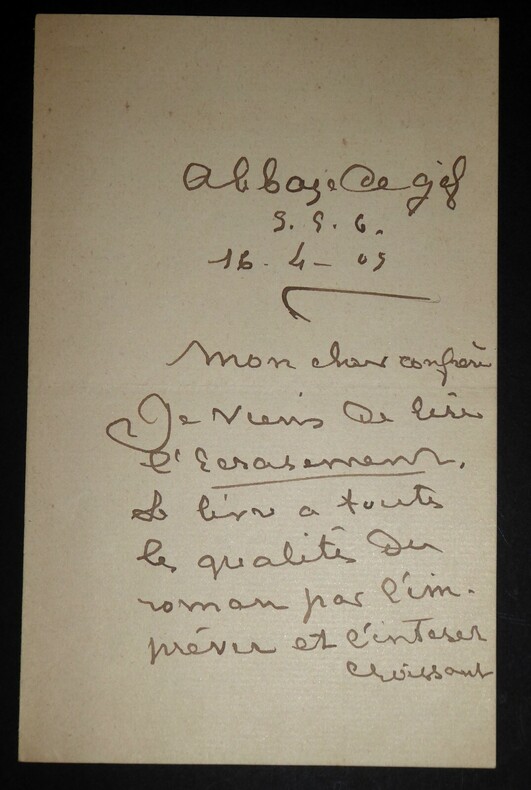 Abbaye de Gif
S. S. O.
16 - 4 - 05
Mon cher confrère
Je viens de lire
l'Ecrasement.
Le livre a toutes
les qualités du
roman par l'im-
prévu et l'intérêt
croissant